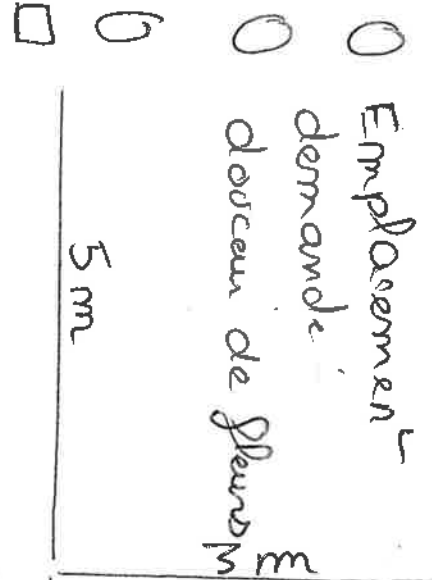 Emplacement
demandé
douceur de fleurs
5 m
3 m